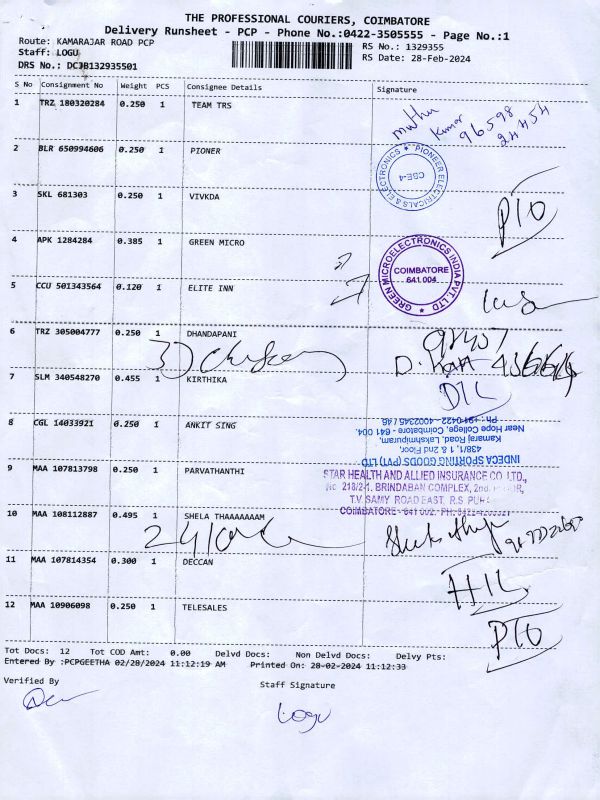 THE PROFESSIONAL COURIERS, COIMBATORE
Delivery Runsheet - PCP - Phone No.:0422-3505555 - Page No.:1
Route: KAMARAJAR ROAD PCP
Staff: LOGU
DRS No.: DCJB132935501
RS No.: 1329355
RS Date: 28-Feb-2024
S No Consignment No Weight PCS Consignee Details Signature
1 TRZ 180320284 0.250 1 TEAM TRS
muthu
Kumar
96598
24454
2 BLR 650994606 0.250 1 PIONER
PIONEER ELECTRICALS & ELECTRONICS
CBE-4
3 SKL 681303 0.250 1 VIVKDA
PTO
4 APK 1284284 0.385 1 GREEN MICRO
GREEN MICROELECTRONICS INDIA PVT LTD
COIMBATORE
641 004.
5 CCU 501343564 0.120 1 ELITE INN
6 TRZ 305004777 0.250 1 DHANDAPANI
7 SLM 340548270 0.455 1 KIRTHIKA
DTL
8 CGL 14033921 0.250 1 ANKIT SING
INDECA SPORTING GOODS (PVT) LTD
438/1, 1 & 2nd Floor,
Kamaraj Road, Lakshmipuram,
Near Hope College, Coimbatore - 641 004.
Ph : +91-0422 - 4002345 / 46
9 MAA 107813798 0.250 1 PARVATHANTHI
STAR HEALTH AND ALLIED INSURANCE CO. LTD.,
No 218/2-1, BRINDABAN COMPLEX, 2nd
T.V. SAMY ROAD EAST, R.S. PUR
COIMBATORE - 641 002. PH: 0422
10 MAA 108112887 0.495 1 SHELA THAAAAAAAM
11 MAA 107814354 0.300 1 DECCAN
HIL
12 MAA 10906098 0.250 1 TELESALES
PTO
Tot Docs: 12 Tot COD Amt: 0.00 Delvd Docs: Non Delvd Docs: Delvy Pts:
Entered By :PCPGEETHA 02/28/2024 11:12:19 AM Printed On: 28-02-2024 11:12:33
Verified By
Staff Signature
Logu